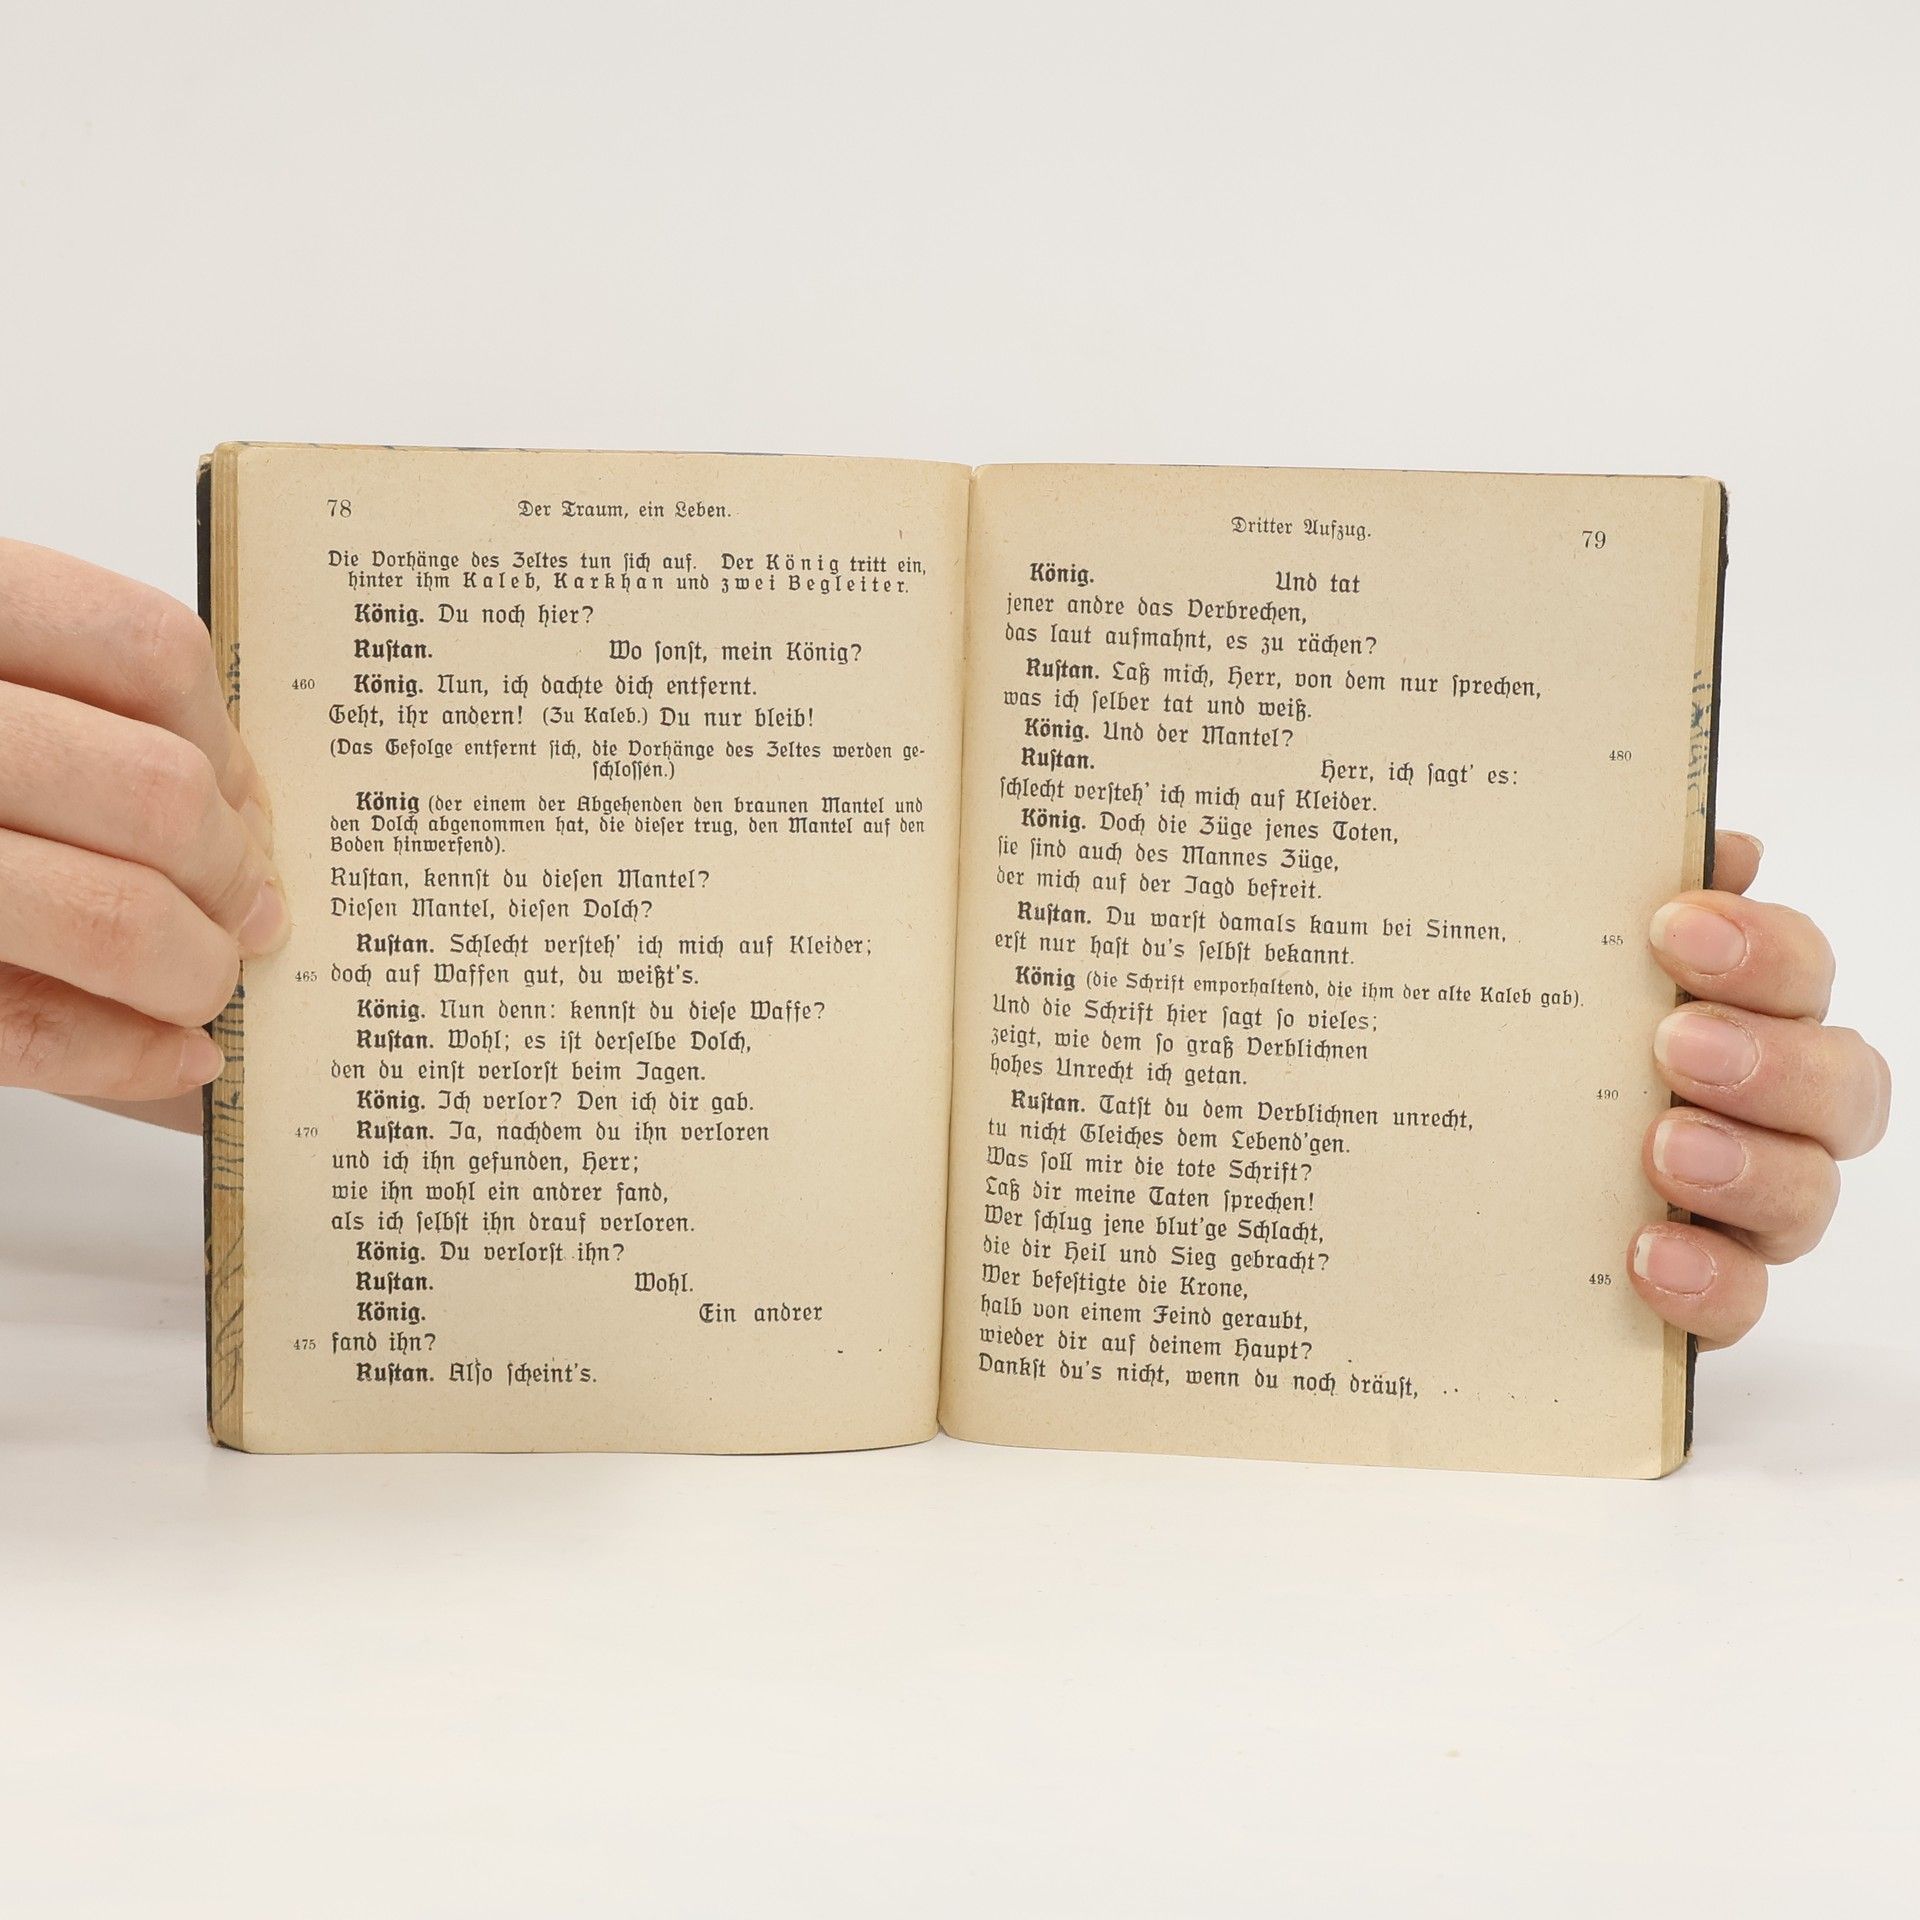 78
Der Traum, ein Leben.
Die Vorhänge des Zeltes tun ſich auf. Der König tritt ein,
hinter ihm Kaleb, Karkhan und zwei Begleiter.
König. Du noch hier?
Ruſtan. Wo ſonſt, mein König?
460 König. Nun, ich dachte dich entfernt.
Geht, ihr andern! (Zu Kaleb.) Du nur bleib!
(Das Gefolge entfernt ſich, die Vorhänge des Zeltes werden ge-
ſchloſſen.)
König (der einem der Abgehenden den braunen Mantel und
den Dolch abgenommen hat, die dieſer trug, den Mantel auf den
Boden hinwerfend).
Ruſtan, kennſt du dieſen Mantel?
Dieſen Mantel, dieſen Dolch?
Ruſtan. Schlecht verſteh' ich mich auf Kleider;
465 doch auf Waffen gut, du weißt's.
König. Nun denn: kennſt du dieſe Waffe?
Ruſtan. Wohl; es iſt derſelbe Dolch,
den du einſt verlorſt beim Jagen.
König. Ich verlor? Den ich dir gab.
470 Ruſtan. Ja, nachdem du ihn verloren
und ich ihn gefunden, Herr;
wie ihn wohl ein andrer fand,
als ich ſelbſt ihn drauf verloren.
König. Du verlorſt ihn?
Ruſtan. Wohl.
König. Ein andrer
475 fand ihn?
Ruſtan. Alſo ſcheint's.
Dritter Aufzug.
79
König. Und tat
jener andre das Verbrechen,
das laut aufmahnt, es zu rächen?
Ruſtan. Laß mich, Herr, von dem nur ſprechen,
was ich ſelber tat und weiß.
König. Und der Mantel?
480
Ruſtan. Herr, ich ſagt' es:
ſchlecht verſteh' ich mich auf Kleider.
König. Doch die Züge jenes Toten,
ſie ſind auch des Mannes Züge,
der mich auf der Jagd befreit.
Ruſtan. Du warſt damals kaum bei Sinnen, 485
erſt nur haſt du's ſelbſt bekannt.
König (die Schrift emporhaltend, die ihm der alte Kaleb gab).
Und die Schrift hier ſagt ſo vieles;
zeigt, wie dem ſo graß Verblichnen
hohes Unrecht ich getan.
Ruſtan. Tatſt du dem Verblichnen unrecht, 490
tu nicht Gleiches dem Lebend'gen.
Was ſoll mir die tote Schrift?
Laß dir meine Taten ſprechen!
Wer ſchlug jene blut'ge Schlacht,
die dir Heil und Sieg gebracht?
Wer befeſtigte die Krone, 495
halb von einem Feind geraubt,
wieder dir auf deinem Haupt?
Dankſt du's nicht, wenn du noch dräuſt,